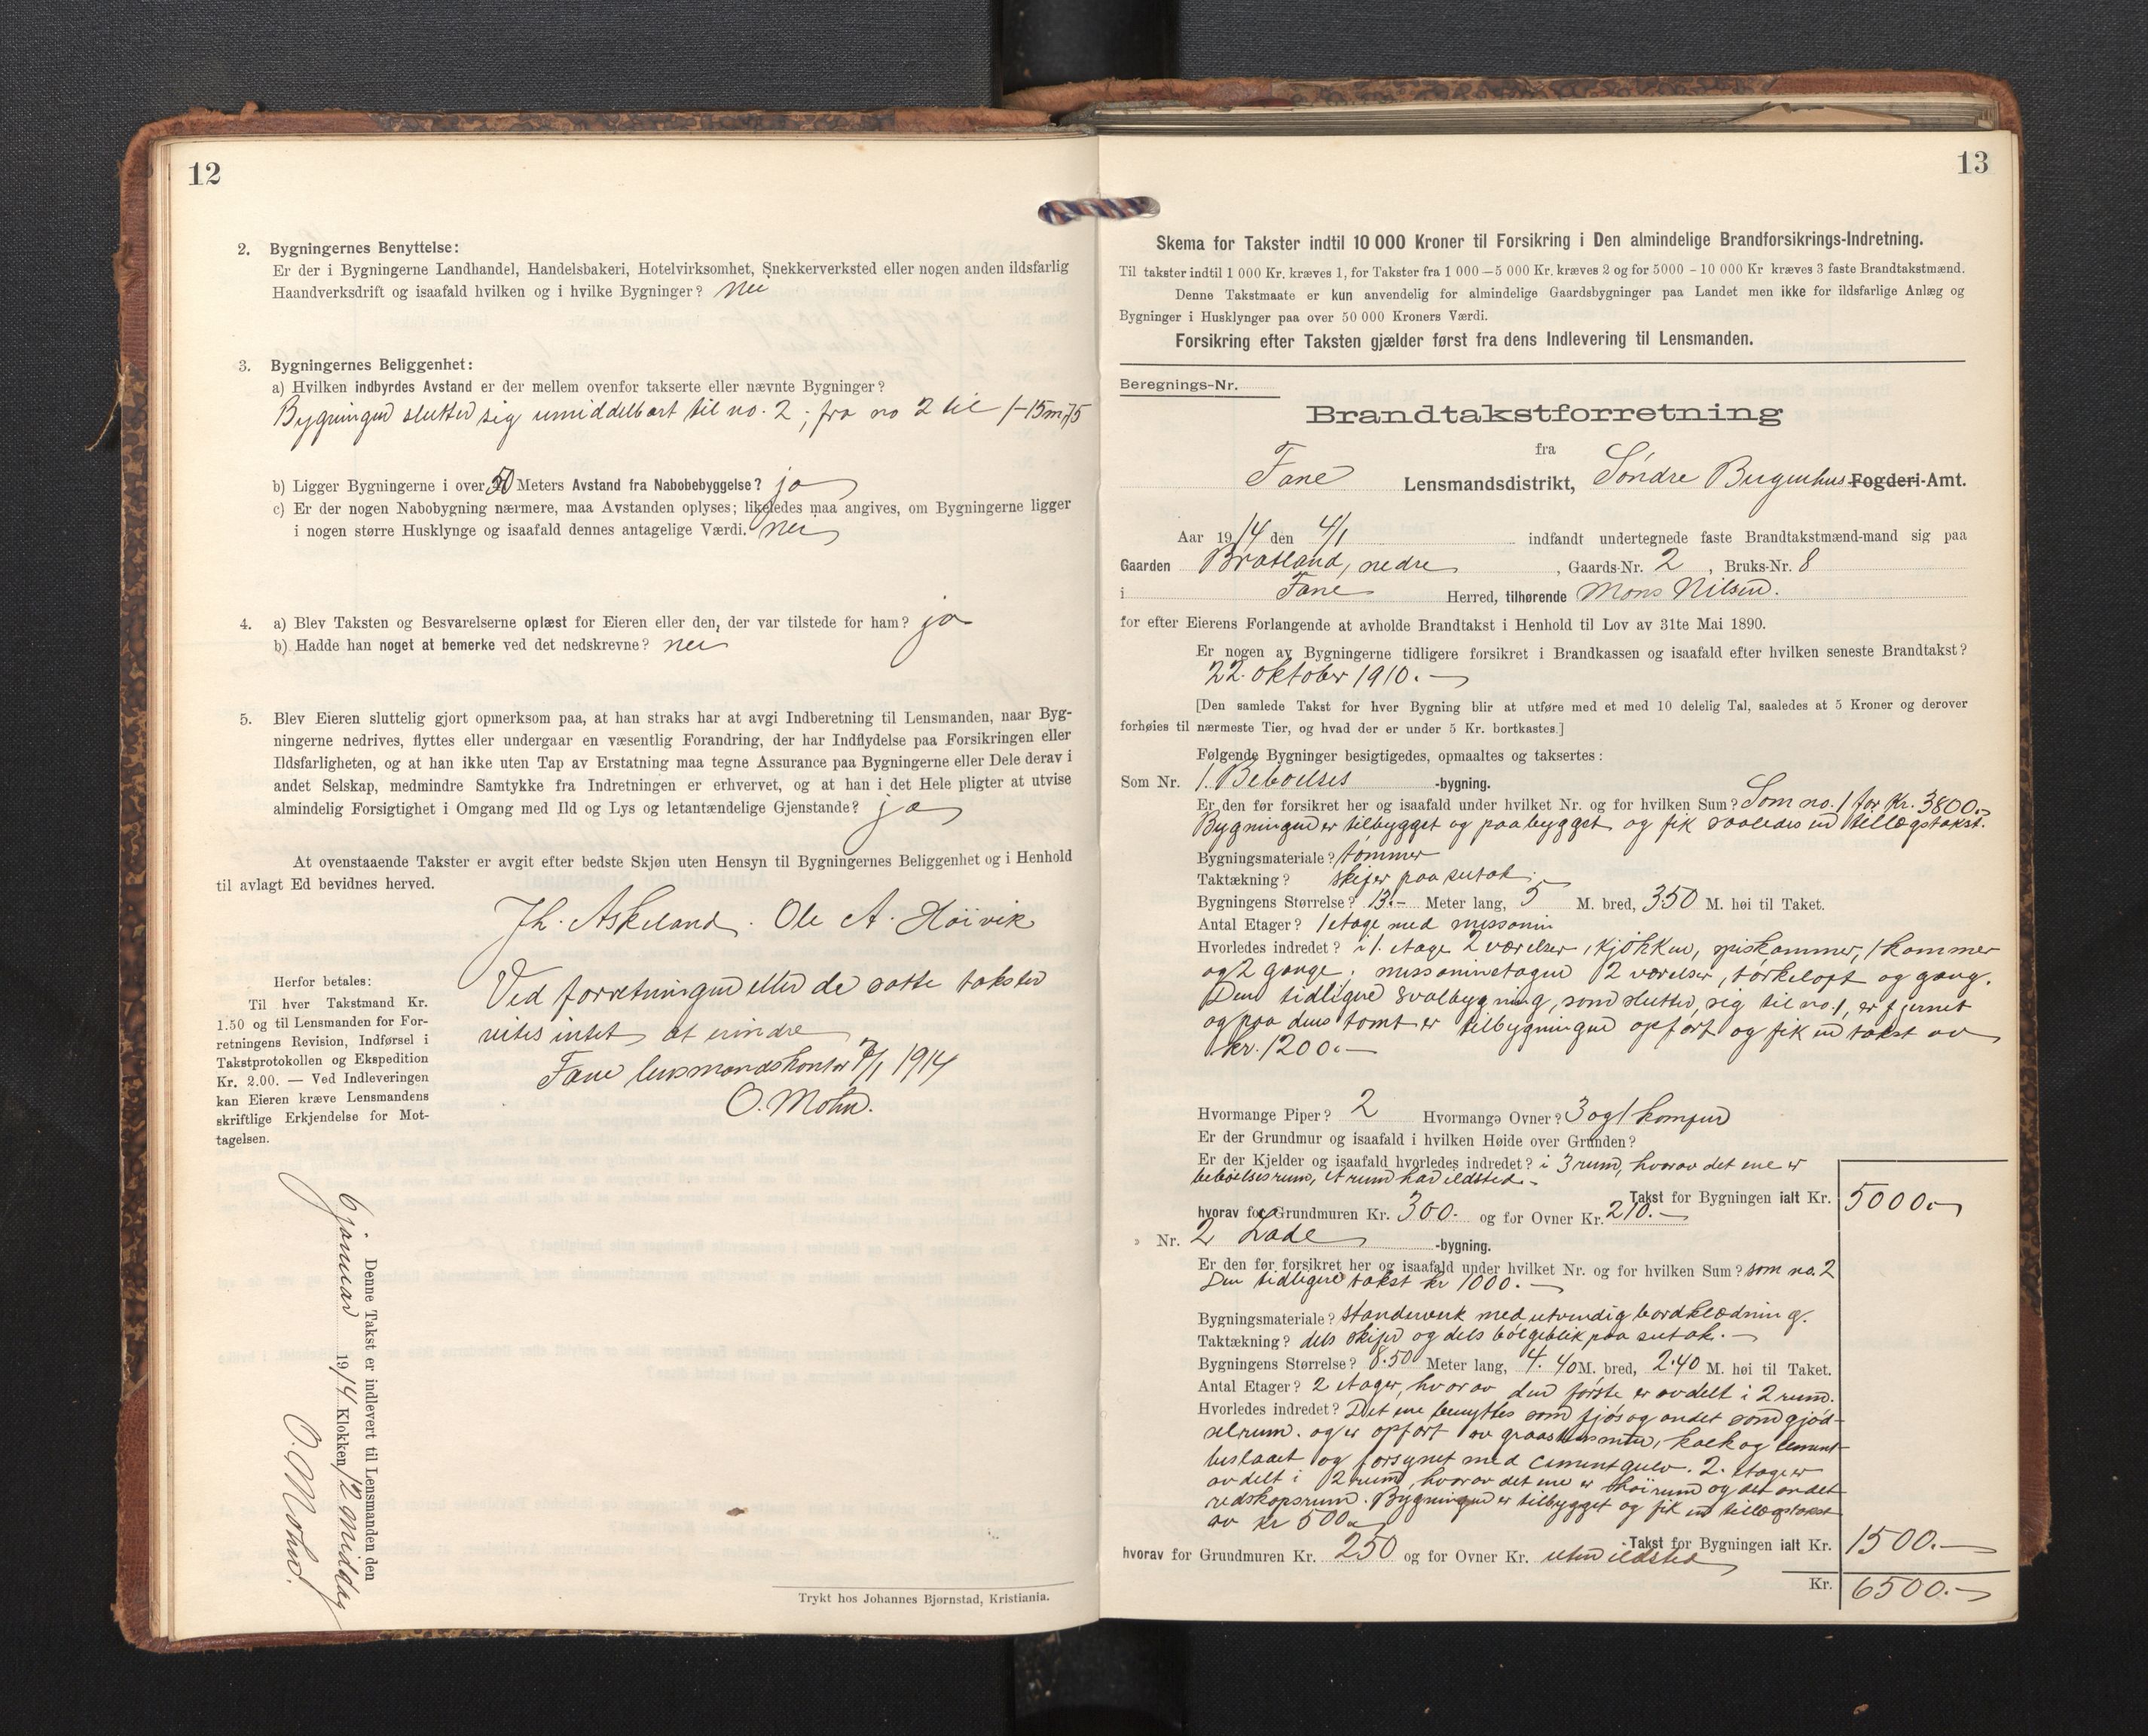 12
2. Bygningernes Benyttelse:
Er der i Bygningerne Landhandel, Handelsbakeri, Hotelvirksomhet, Snekkerverksted eller nogen anden ildsfarlig
Haandverksdrift og isaafald hvilken og i hvilke Bygninger? nei
3. Bygningernes Beliggenhet:
a) Hvilken indbyrdes Avstand er der mellem ovenfor takserte eller nævnte Bygninger?
Bygningen slutter sig umiddelbart til no. 2; fra no 2 til 1 - 15 m, 75
b) Ligger Bygningerne i over 50 Meters Avstand fra Nabobebyggelse? ja
c) Er der nogen Nabobygning nærmere, maa Avstanden oplyses; likeledes maa angives, om Bygningerne ligger
i nogen større Husklynge og isaafald dennes antagelige Værdi. nei
4. a) Blev Taksten og Besvarelserne oplæst for Eieren eller den, der var tilstede for ham? ja
b) Hadde han noget at bemerke ved det nedskrevne? nei
5. Blev Eieren sluttelig gjort opmerksom paa, at han straks har at avgi Indberetning til Lensmanden, naar Byg-
ningerne nedrives, flyttes eller undergaar en væsentlig Forandring, der har Indflydelse paa Forsikringen eller
Ildsfarligheten, og at han ikke uten Tap av Erstatning maa tegne Assurance paa Bygningerne eller Dele derav i
andet Selskap, medmindre Samtykke fra Indretningen er erhvervet, og at han i det Hele pligter at utvise
almindelig Forsigtighet i Omgang med Ild og Lys og letantændelige Gjenstande? ja
At ovenstaaende Takster er avgit efter bedste Skjøn uten Hensyn til Bygningernes Beliggenhet og i Henhold
til avlagt Ed bevidnes herved.
Jh. Askeland. Ole A. Høivik
Herfor betales:
Til hver Takstmand Kr.
1.50 og til Lensmanden for For-
retningens Revision, Indførsel i
Takstprotokollen og Ekspedition
Kr. 2.00. — Ved Indleveringen
kan Eieren kræve Lensmandens
skriftlige Erkjendelse for Mot-
tagelsen.
Ved forretningen eller de satte takster
vites intet at erindre
Fane lensmandskontor /1 1914
O. Mohn.
Denne Takst er indlevert til Lensmanden den
6 januar 1914 Klokken 12 middag
O. Mohn.
Trykt hos Johannes Bjørnstad, Kristiania.
13
Skema for Takster indtil 10 000 Kroner til Forsikring i Den almindelige Brandforsikrings-Indretning.
Til takster indtil 1 000 Kr. kræves 1, for Takster fra 1 000 — 5 000 Kr. kræves 2 og for 5000 - 10 000 Kr kræves 3 faste Brandtakstmænd.
Denne Takstmaate er kun anvendelig for almindelige Gaardsbygninger paa Landet men ikke for ildsfarlige Anlæg og
Bygninger i Husklynger paa over 50 000 Kroners Værdi.
Forsikring efter Taksten gjælder først fra dens Indlevering til Lensmanden.
Beregnings-Nr.
Brandtakstforretning
fra
Fane Lensmandsdistrikt, Søndre Bergenhus Fogderi-Amt.
Aar 1914 den 4/1 indfandt undertegnede faste Brandtakstmænd-mand sig paa
Gaarden Bratland, nedre, Gaards-Nr. 2, Bruks-Nr. 8
i Fane Herred, tilhørende Mons Nilsen.
for efter Eierens Forlangende at avholde Brandtakst i Henhold til Lov av 31te Mai 1890.
Er nogen av Bygningerne tidligere forsikret i Brandkassen og isaafald efter hvilken seneste Brandtakst?
22. oktober 1910. —
[Den samlede Takst for hver Bygning blir at utføre med et med 10 delelig Tal, saaledes at 5 Kroner og derover
forhøies til nærmeste Tier, og hvad der er under 5 Kr. bortkastes.]
Følgende Bygninger besigtigedes, opmaaltes og taksertes:
Som Nr. 1. Beboelses -bygning.
Er den før forsikret her og isaafald under hvilket Nr. og for hvilken Sum? Som no. 1 for Kr. 3800.-
Bygningen er tilbygget og paabygget og fik saaledes en tillægstakst.
Bygningsmateriale? tømmer
Taktækning? skifer paa sutak.
Bygningens Størrelse? 13.- Meter lang, 5 M. bred, 3.50 M. høi til Taket.
Antal Etager? 1 etage med messanin
Hvorledes indredet? i 1. etage 2 værelser, kjøkken, spiskammer, 1 kammer
og 2 gange; messaninetagen 2 værelser, tørkeloft og gang.
Den tidligere svalbygning, som slutter sig til no. 1, er fjernet
og paa dens tomt er tilbygningen opført og fik en takst av
kr. 1200.—
Hvormange Piper? 2 Hvormange Ovner? 3 og 1 komfur
Er der Grundmur og isaafald i hvilken Høide over Grunden?
Er der Kjelder og isaafald hvorledes indredet? i 3 rum, hvorav det ene er
beboelsesrum, et rum har ildsted.-
Takst for Bygningen ialt Kr. 5000.-
hvorav for Grundmuren Kr. 300.- og for Ovner Kr. 210.—
Nr. 2 Lade -bygning.
Er den før forsikret her og isaafald under hvilket Nr. og for hvilken Sum? som no. 2
Den tidligere takst kr 1000.—
Bygningsmateriale? standverk med utvendig bordklædning.
Taktækning? dels skifer og dels bølgeblik paa sutak.—
Bygningens Størrelse? 8.50 Meter lang, 4.40 M. bred, 2.40 M. høi til Taket.
Antal Etager? 2 etager, hvorav den første er avdelt i 2 rum.
Hvorledes indredet? Det ene benyttes som fjøs og andet som gjød-
selrum. og er opført av graastensmur, kalk og cement-
beslaaet og forsynet med cementgulv. 2. etage er
avdelt i 2 rum, hvorav det ene er høirum og det andet
redskapsrum. Bygningen er tilbygget og fik en tillægstakst
av kr 500.-
Takst for Bygningen ialt Kr. 1500.—
hvorav for Grundmuren Kr. 250 og for Ovner Kr. uten ildsted
Kr. 6500.—